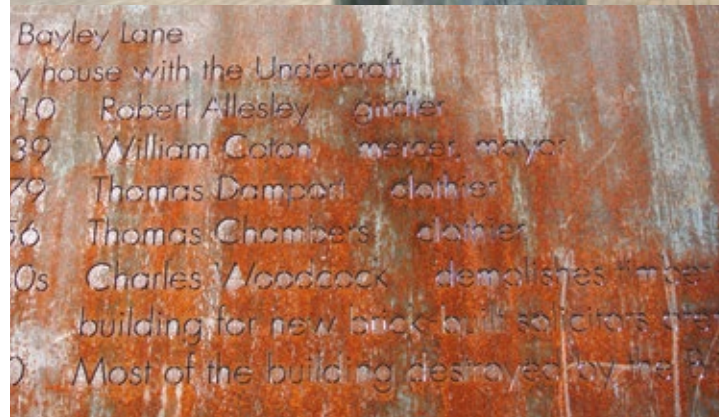 Bayley Lane
y house with the Undercroft
10 Robert Allesley girdler
39 William Coton mercer, mayor
79 Thomas Damport clothier
56 Thomas Chambers clothier
0s Charles Woodcock demolishes timber
building for new brick-built solicitors
0 Most of the building destroyed by the B